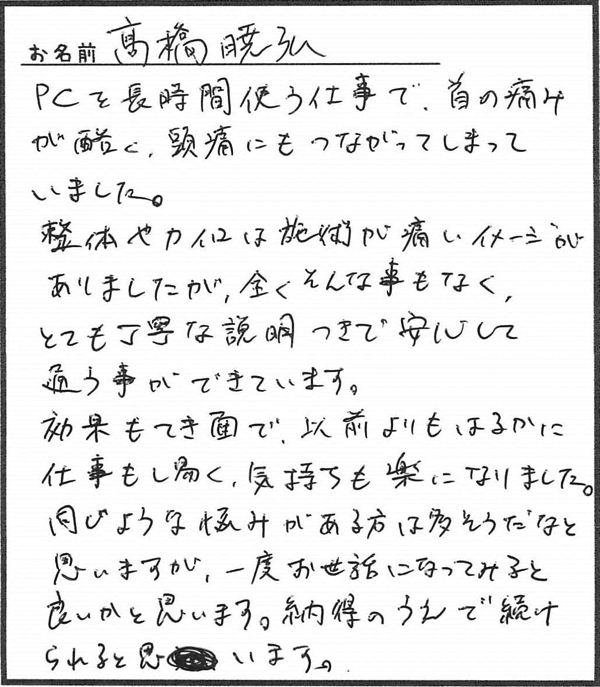 お名前 高橋暁弘
PCを長時間使う仕事で、首の痛み
が酷く、頭痛にもつながってしまって
いました。
整体やカイロは施術が痛いイメージが
ありましたが、全くそんな事もなく、
とても丁寧な説明つきで安心して
通う事ができています。
効果もてき面で、以前よりもはるかに
仕事もし易く、気持ちも楽になりました。
同じような悩みがある方は多そうだなと
思いますが、一度お世話になってみると
良いかと思います。納得のうえで続け
られると思います。